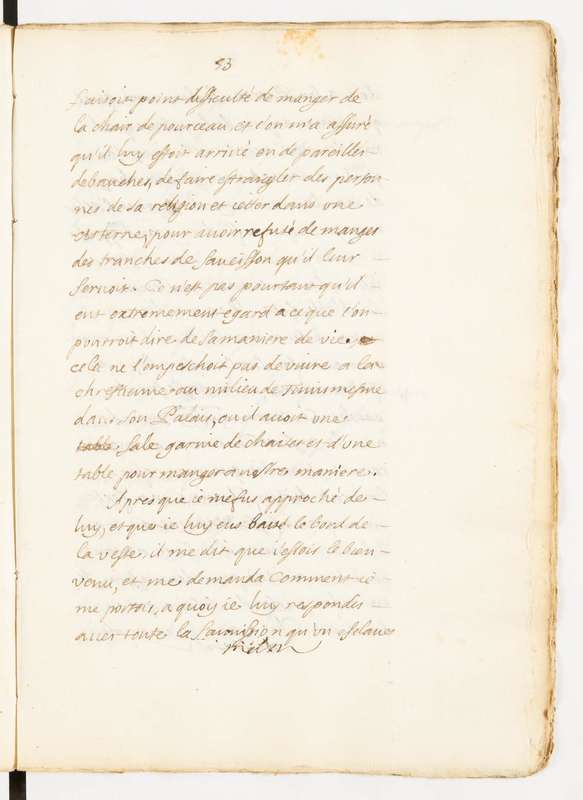 53
faisoit point difficulté de manger de
la chair de pourceau, et l'on m'a assuré
qu'il luy estoit arrivé en de pareilles
debauches, de faire estrangler des person-
nes de sa religion et jetter dans une
cisterne, pour avoir refusé de manger
des tranches de saucisson qu'il leur
servoit. Ce n'est pas pourtant qu'il
eut extremement egard a ce que l'on
pourroit dire de sa maniere de vie.
cela ne l'empeschoit pas de vivre a la
chrestienne au milieu de Tunis mesme
dans son Palais, ou il avoit une
table sale garnie de chaises et d'une
table pour manger a nostre maniere.
Apres que ie me fus approché de
luy, et que ie luy eus baisé le bord de
la veste, il me dit que i'estois le bien
venu, et me demanda comment ie
me portois, a quoy ie luy respondis
avec toute la soumission qu'un esclave